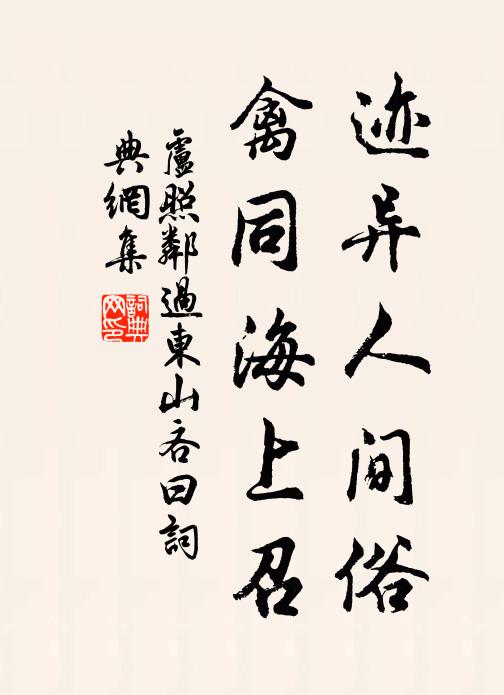 迹异人间俗
禽同海上召
盧照鄰過東山谷口詞
典網集
詞典
网印